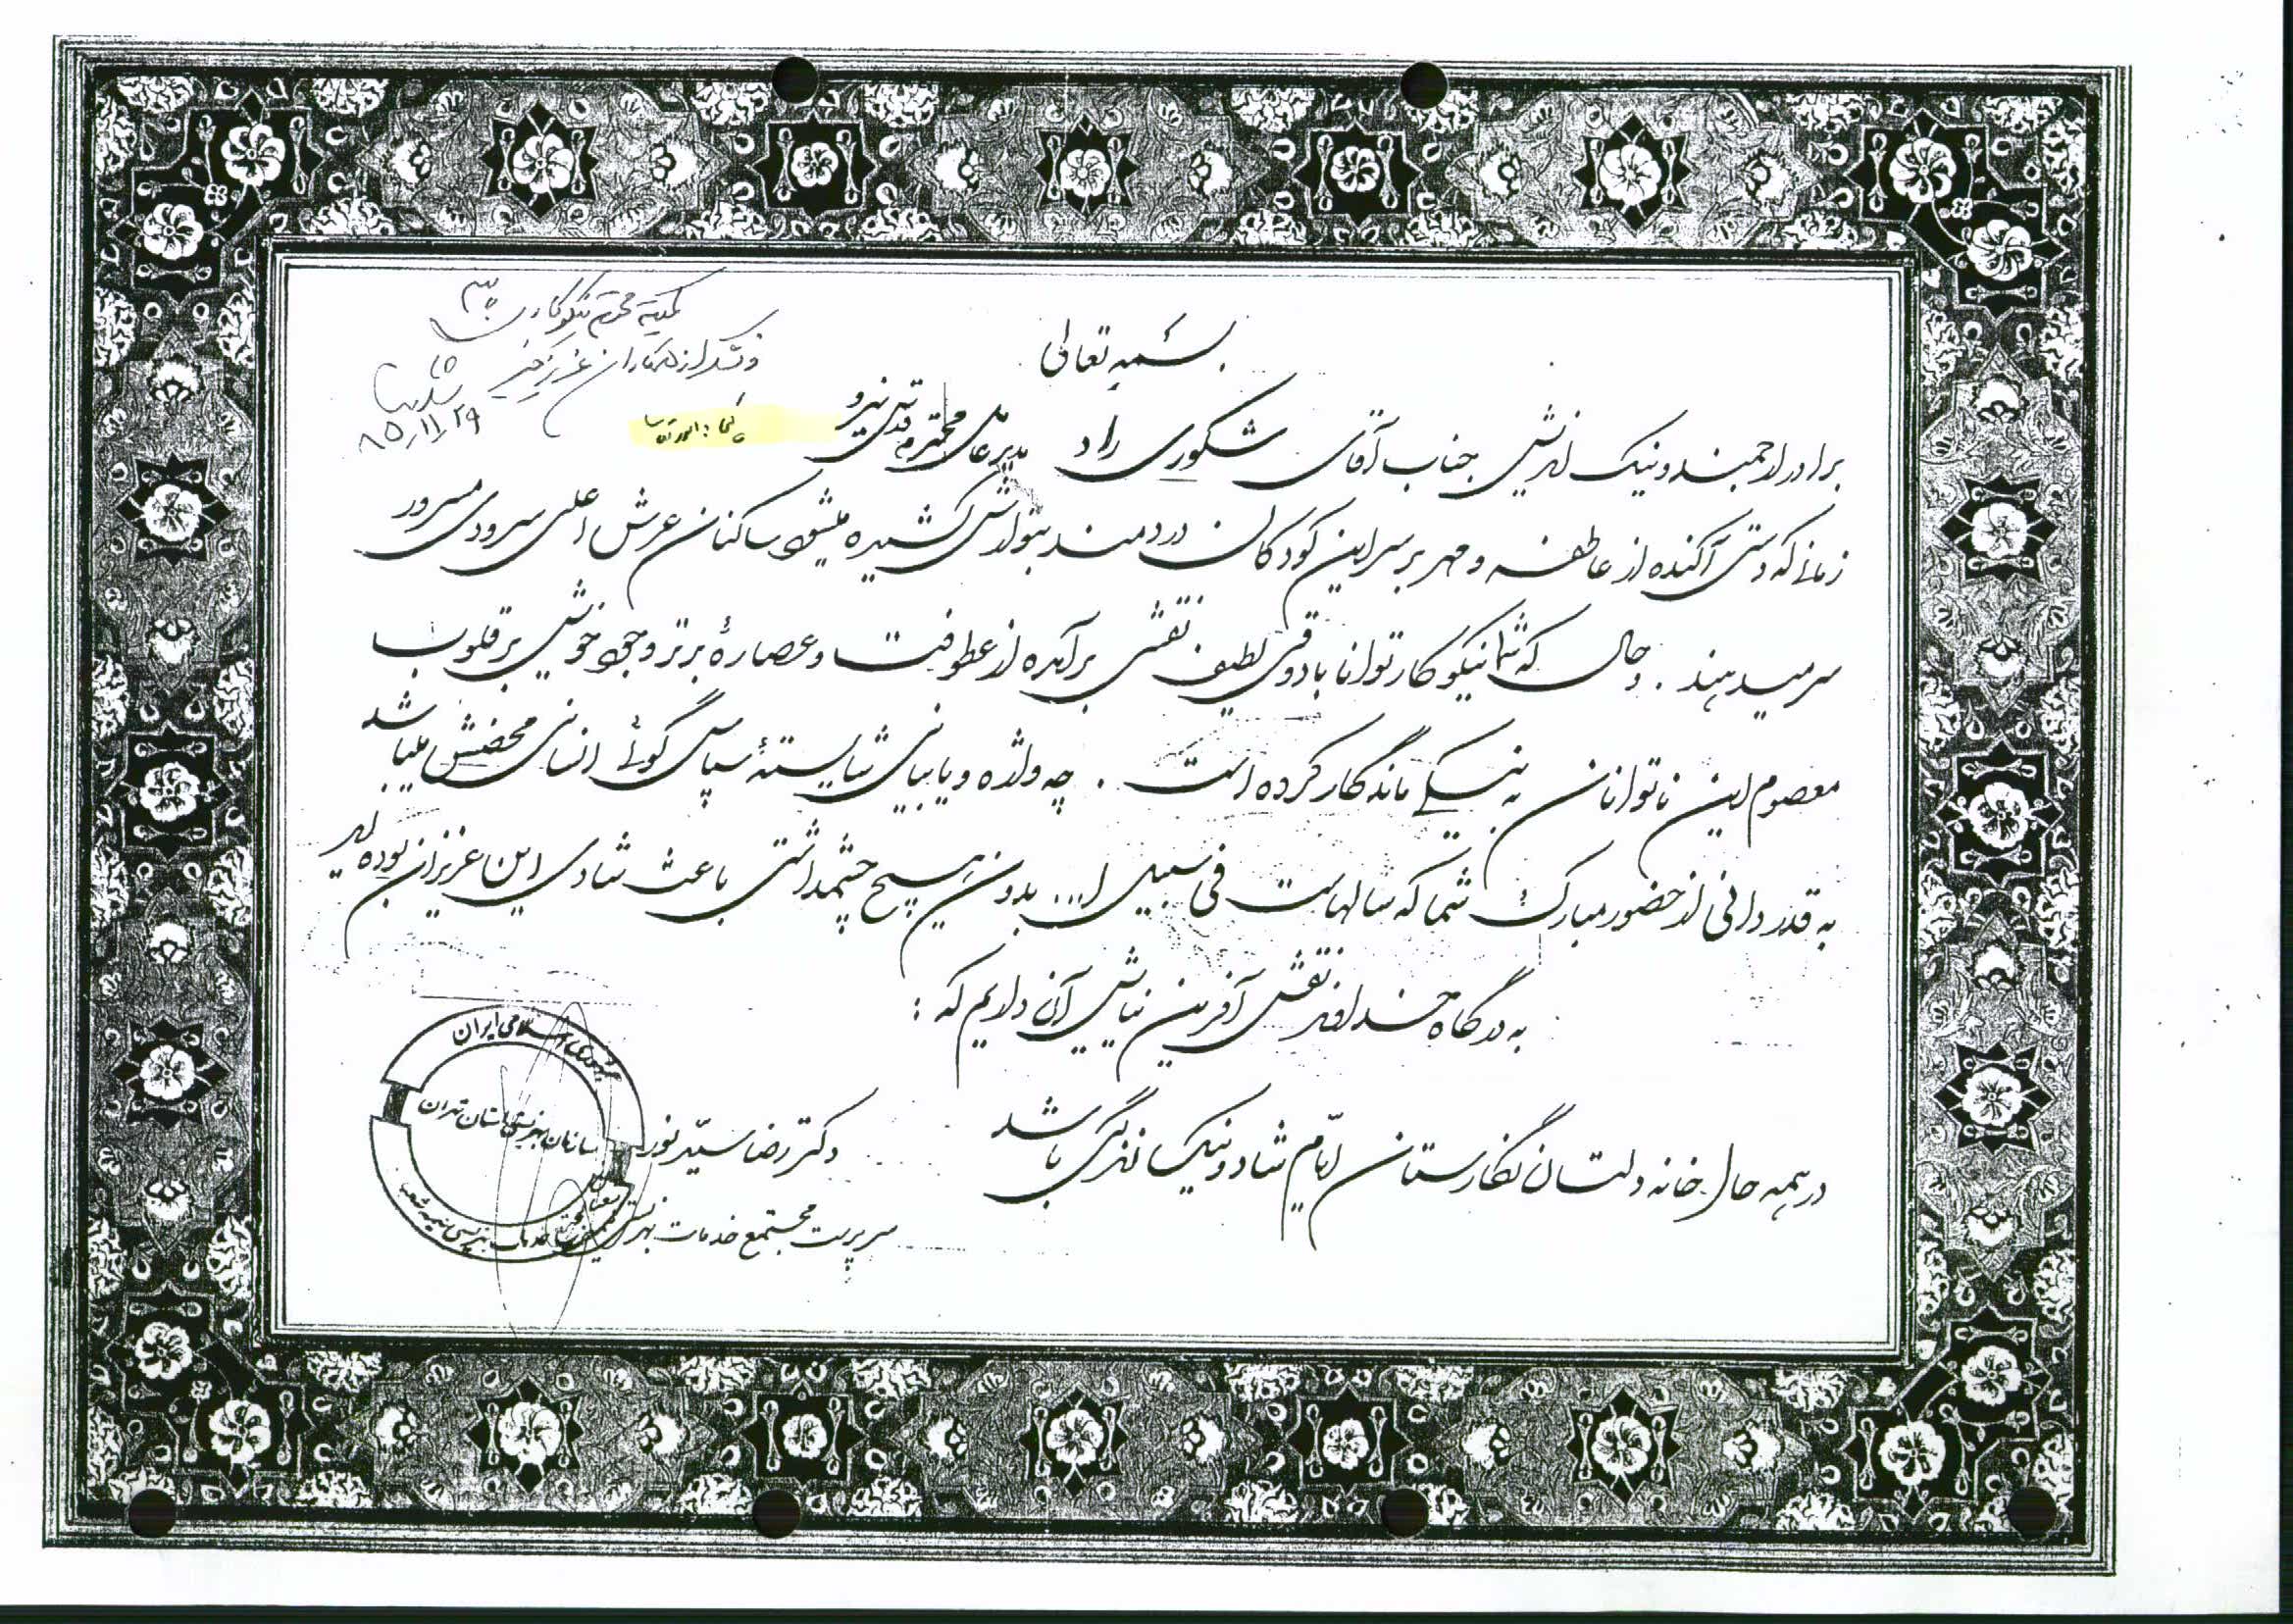 کمیته محترم نیکوکاری
و تشکر از همکاران عزیز خیر
۸۵/۱۱/۲۹
بسمه تعالی
برادر ارجمند و نیک اندیش جناب آقای شکوری راد مدیر عامل محترم قدس نیرو
زمانی که دستی آکنده از عاطفه و مهر بر سر این کودکان دردمند بنوازش کشیده میشود ساکنان عرش اعلی سرودی مسرور
سر میدهند . و حال که شما نیکوکار توانا با ذوقی لطیف نقشی برآمده از عطوفت و عصارهٔ برتر وجود خویش بر قلوب
معصوم این ناتوانان به نیکی ماندگار کرده است . چه واژه و یا بیانی شایستهٔ سپاس گوئی انسانی محضش میباشد
به قدردانی از حضور مبارک شما که سالهاست فی سبیل ا... بدون هیچ چشمداشتی باعث شادی این عزیزان بوده اید
به درگاه خداوند نقش آفرین نیایش آن داریم که :
در همه حال خانه دلتان نگارستان ایام شاد و نیک زندگی باشد
دکتر رضا سید نور
سرپرست مجتمع خدمات بهزیستی
جمهوری اسلامی ایران
سازمان بهزیستی استان تهران
مجتمع خدمات بهزیستی نیمه شعبان